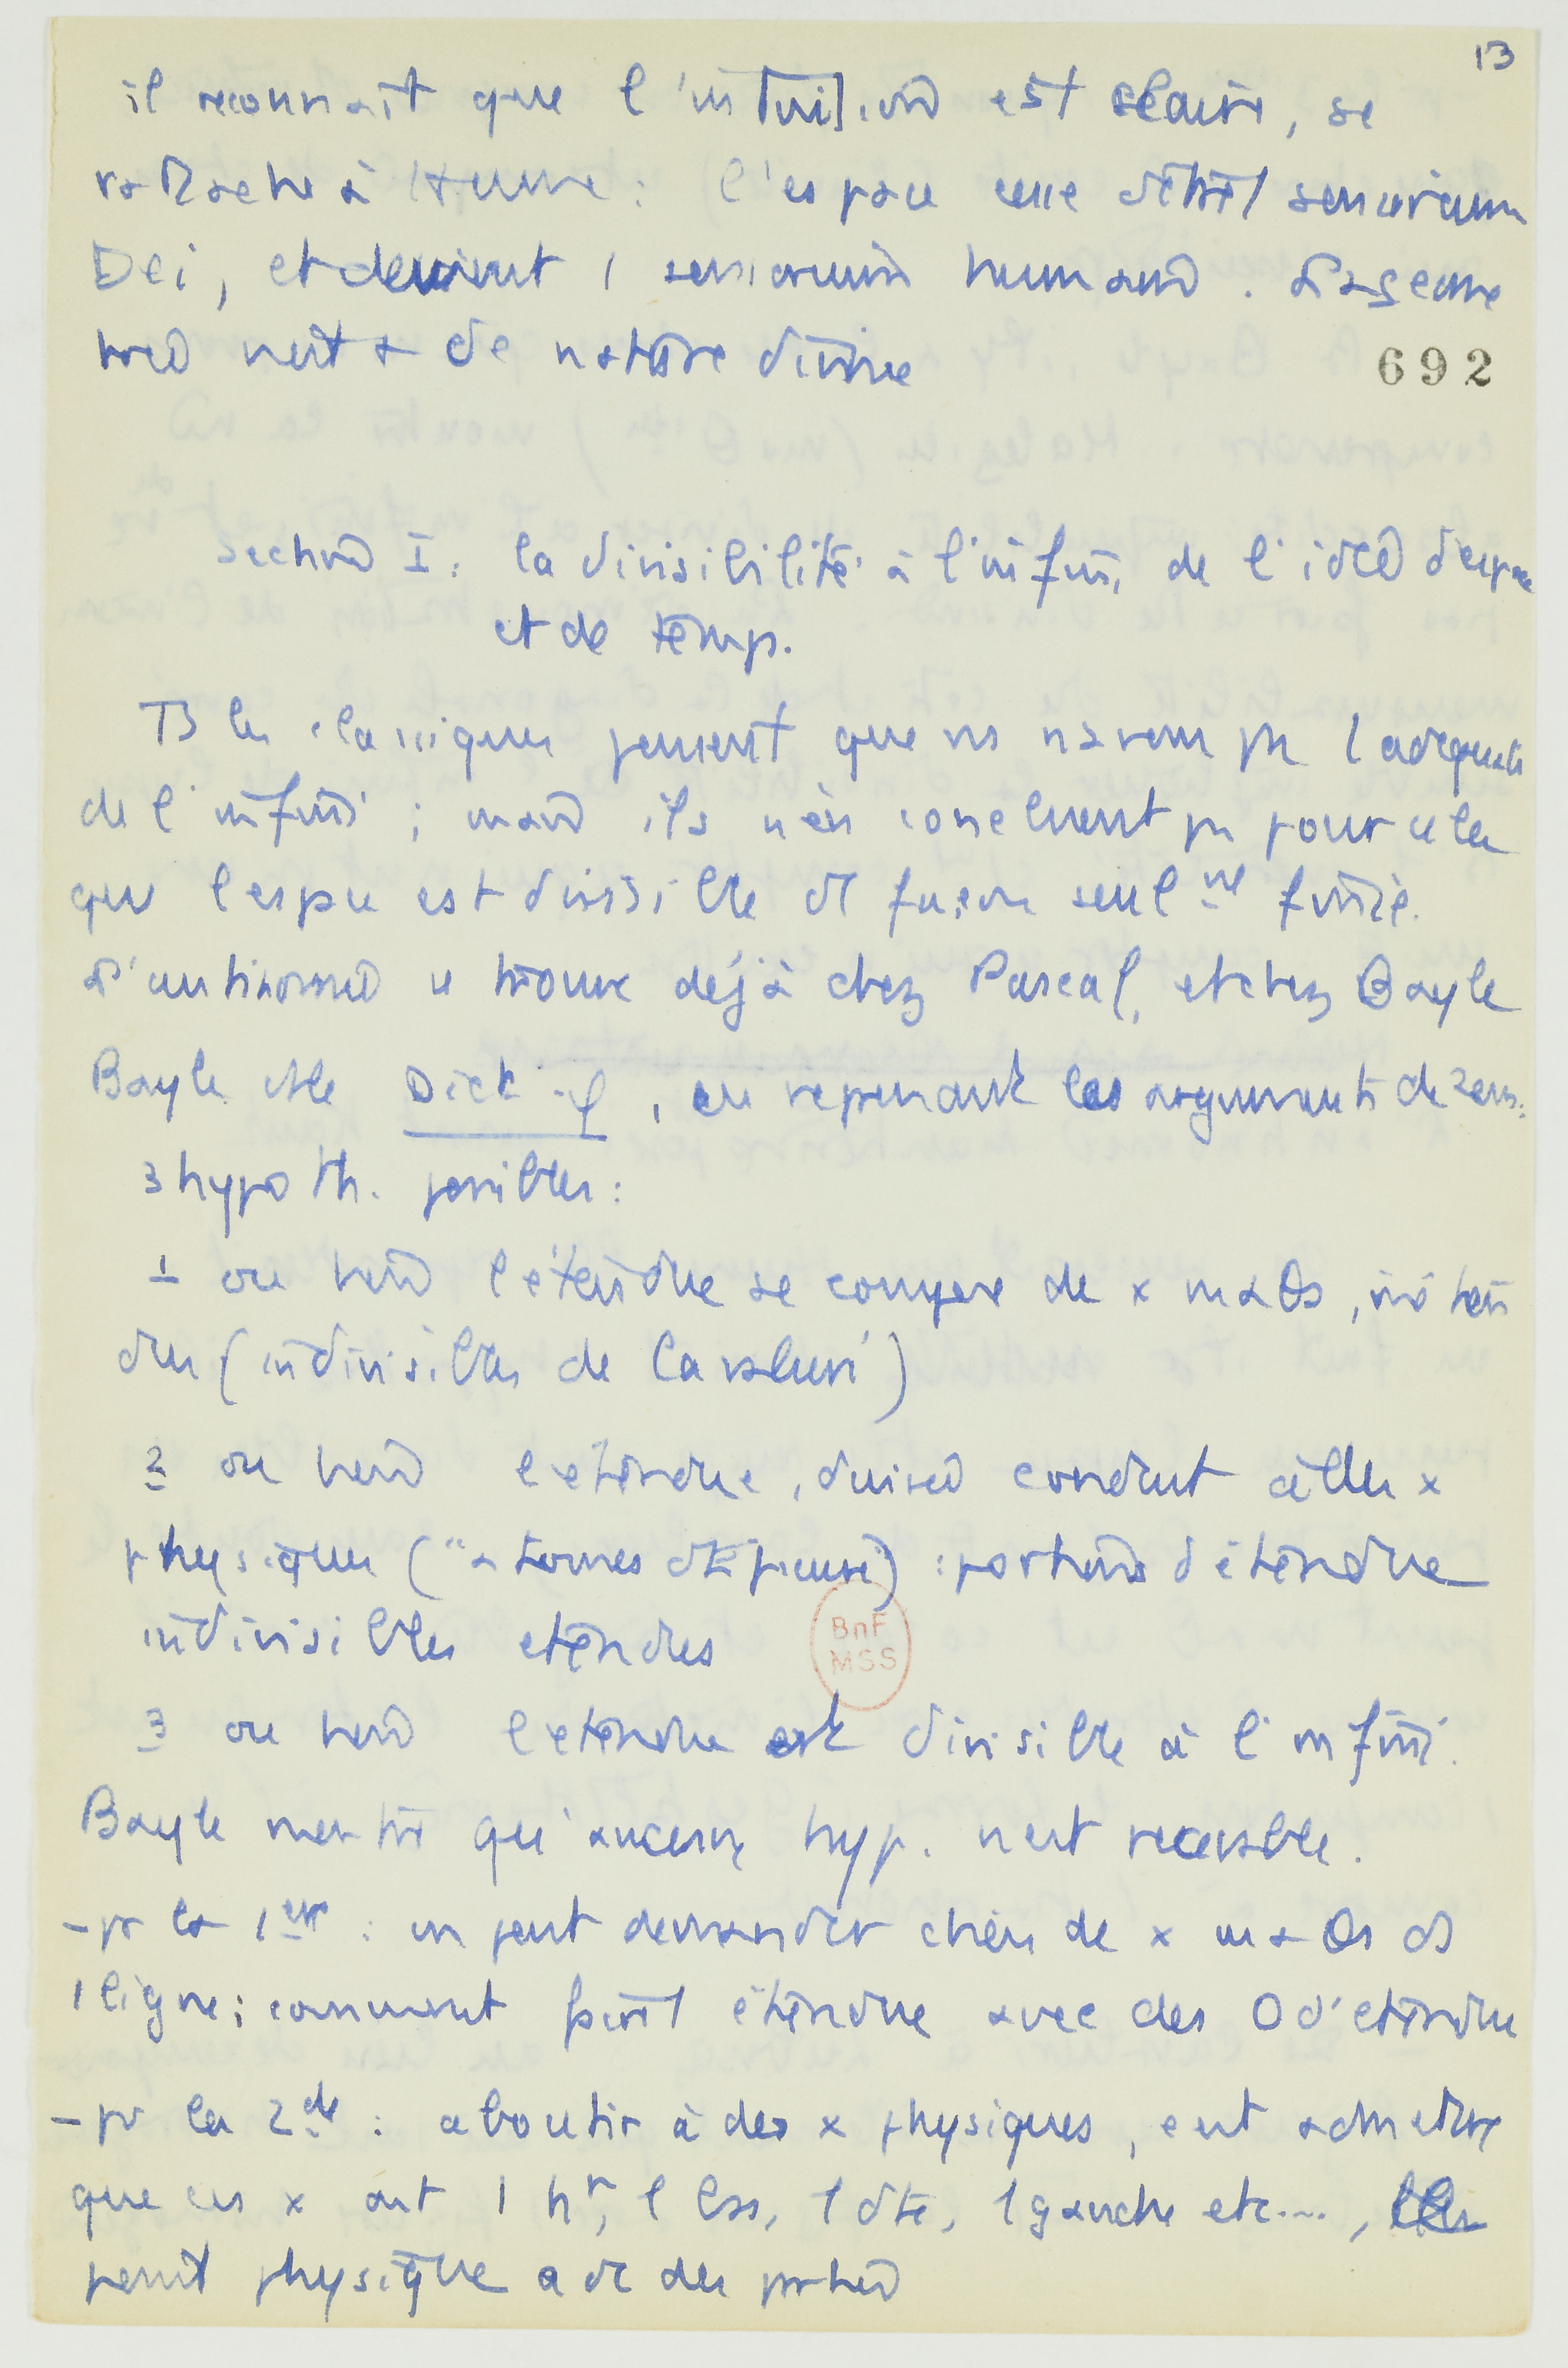 13
il reconnait que l'intuition est claire, se
rattache à Hume : l'espace cesse d'être 1 sensorium
Dei, et devient 1 sensorium humain. La géomé
trie n'est + de nature divine
692
Section I : la divisibilité à l'infini de l'idée d'espace
et de temps.
Ts les classiques pensent que ns n'avons ps l adéquate
de l'infini ; mais ils n'en concluent ps pour cela
que l'espace est divisible de façon seulmt finie.
L'antinomie se trouve déjà chez Pascal, et chez Bayle
Bayle ds le Dict , en reprenant les arguments de Zenon :
3 hypoth. possibles :
1 ou bien l'étendue se compose de x maths, inéten
dus (indivisibles de Cavalieri)
2 ou bien l'étendue, divisée conduit à des x
physiques ("atomes d'Epicure) : portions d'étendue
indivisibles étendues
BnF
MSS
3 ou bien l'étendue est divisible à l'infini.
Bayle montre qu'aucune hyp. n'est recevable.
- pr la 1ère : on peut demander chien de x maths ds
1 ligne ; comment faire 1 étendue avec des 0 d'étendue
- pr la 2de : aboutir à des x physiques, c'est admettre
que ces x ont 1 ht, 1 bas, 1 dte, 1 gauche etc...,
point physique a dc des parties